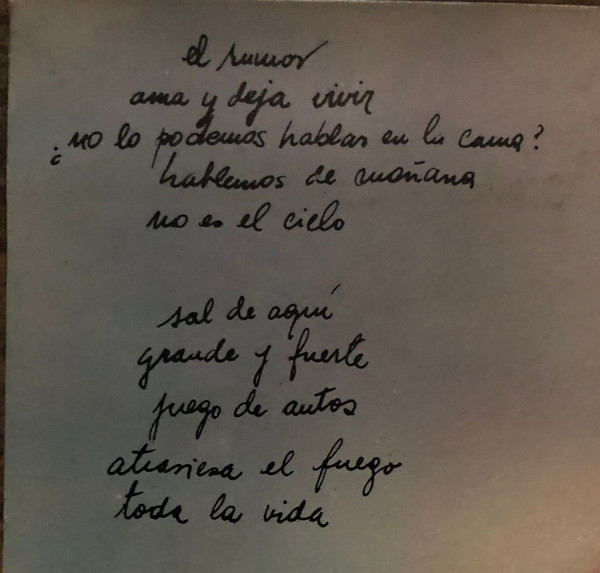 el rumor
ama y deja vivir
¿no lo podemos hablar en la cama?
hablemos de mañana
no es el cielo
sal de aquí
grande y fuerte
juego de autos
atraviesa el fuego
toda la vida